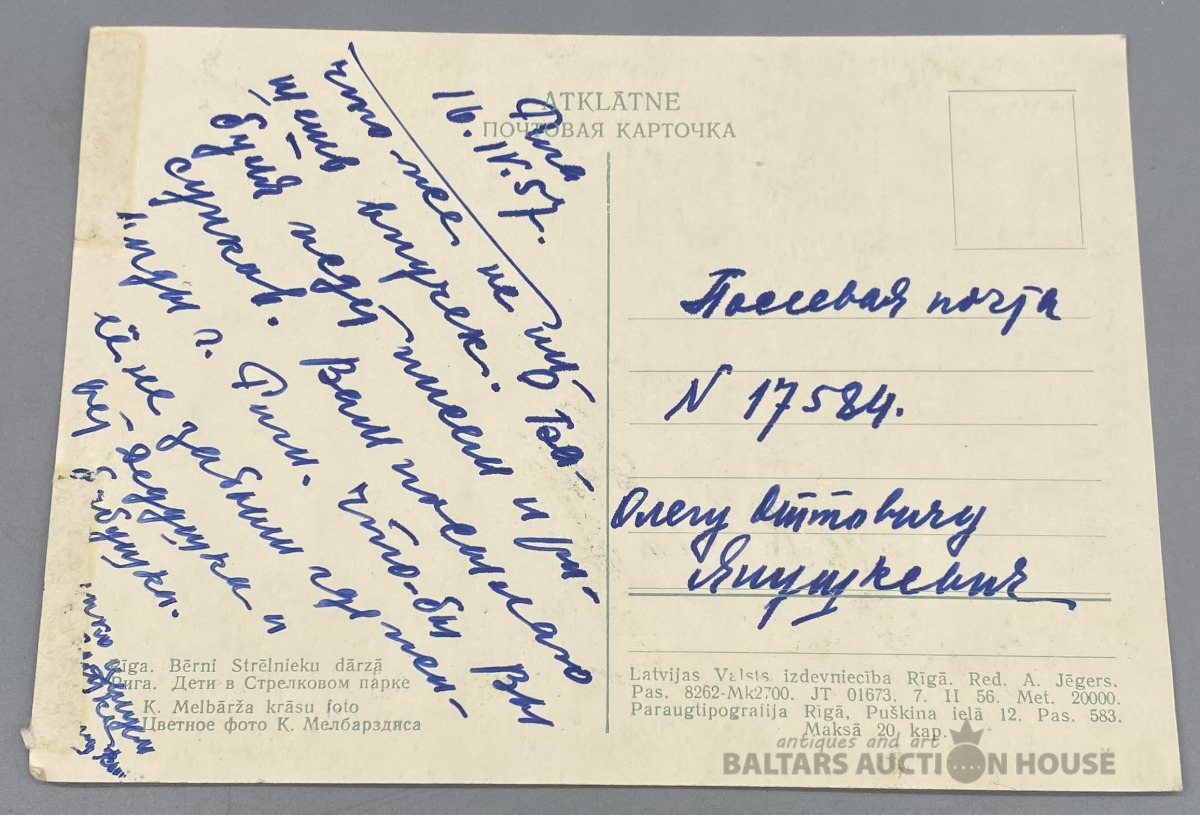 ATKLĀTNE
ПОЧТОВАЯ КАРТОЧКА
Рига
16. IV. 57.
что-же не
внучек.
письм и ри-
буля
сунков. Вам посылаю
виды г. Риги. что-бы Вы
не забыли где жи-
дедушка и
бабушка.
Поссевая почта
N 17584.
Олегу Оттовичу
Янушкевич
Rīga. Bērni Strēlnieku dārzā
Рига. Дети в Стрелковом парке
K. Melbārža krāsu foto
Цветное фото К. Мелбарздиса
Latvijas Valsts izdevniecība Rīgā. Red. A. Jēgers.
Pas. 8262-Mk2700. JT 01673. 7. II 56. Met. 20000.
Paraugtipografija Rīgā, Puškina ielā 12. Pas. 583.
Maksā 20 kap.
antiques and art
BALTARS AUCTION HOUSE